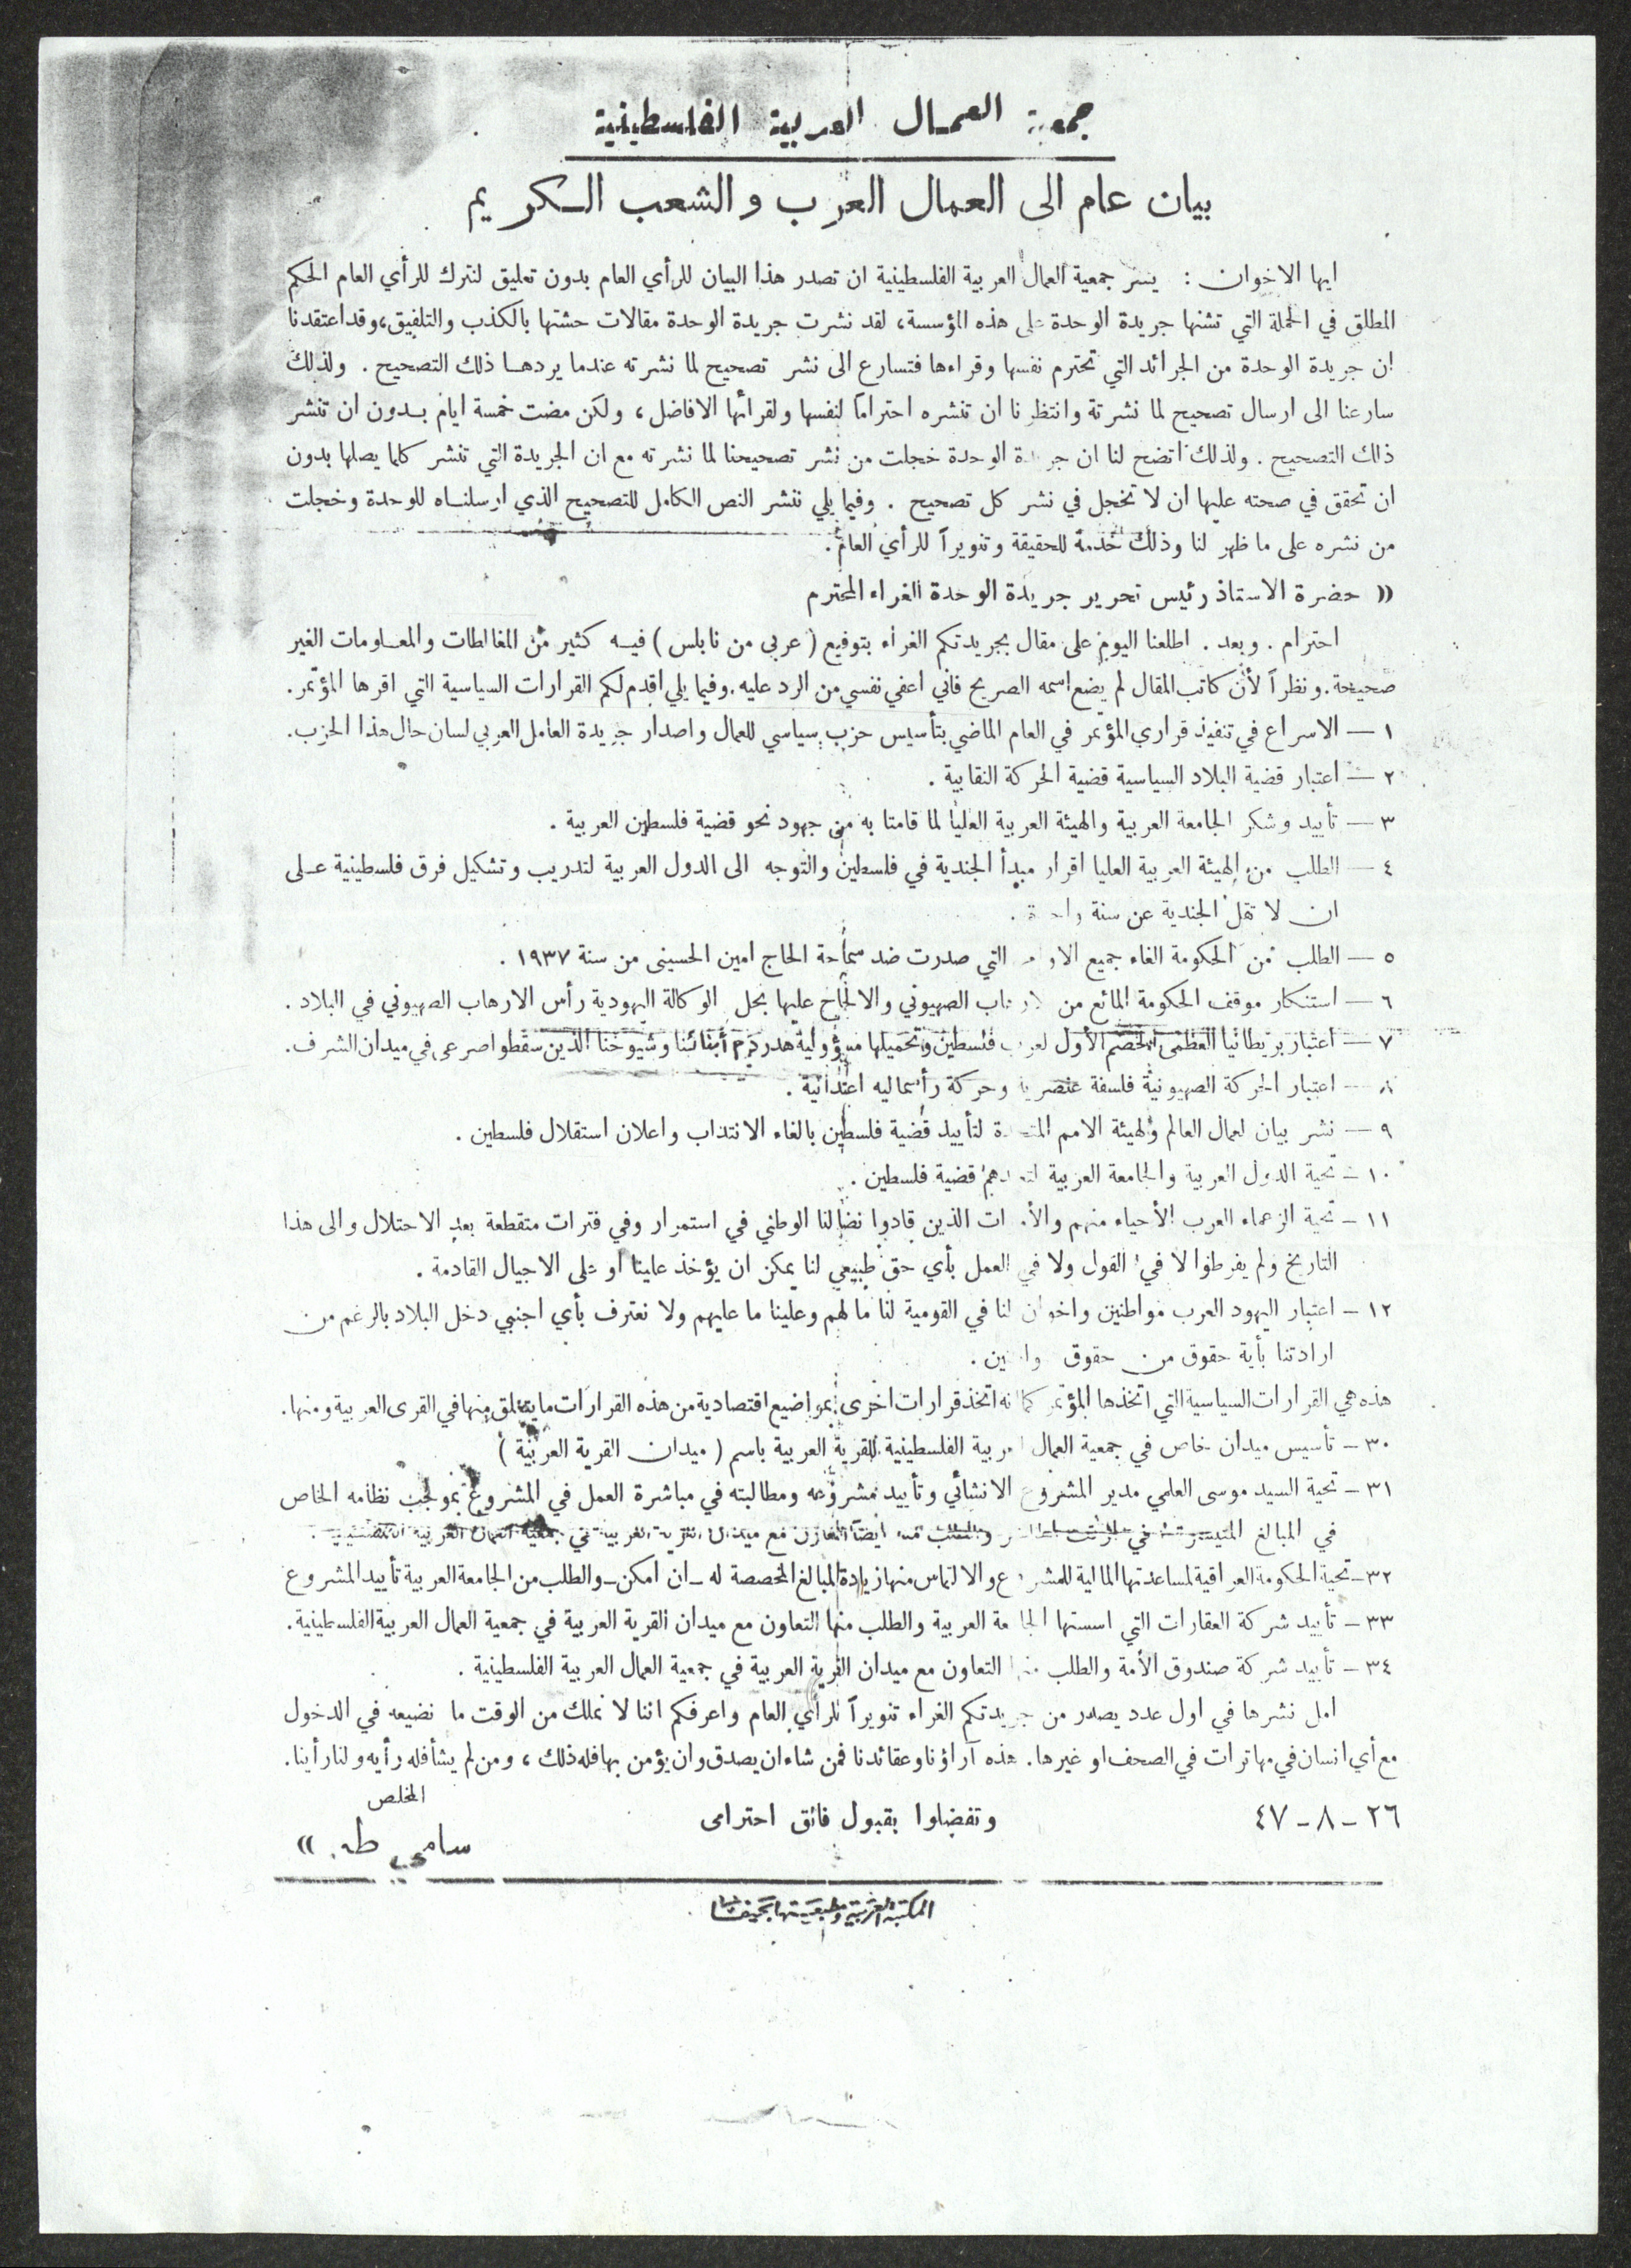 جمعية العمال العربية الفلسطينية
بيان عام الى العمال العرب والشعب الكريم
ايها الاخوان : يسر جمعية العمال العربية الفلسطينية ان تصدر هذا البيان للرأي العام بدون تعليق لنترك للرأي العام الحكم
المطلق في الحملة التي تشنها جريدة الوحدة على هذه المؤسسة، لقد نشرت جريدة الوحدة مقالات حشتها بالكذب والتلفيق، وقد اعتقدنا
ان جريدة الوحدة من الجرائد التي تحترم نفسها وقراءها فتسارع الى نشر تصحيح لما نشرته عندما يردها ذلك التصحيح . ولذلك
سارعنا الى ارسال تصحيح لما نشرتة وانتظرنا ان تنشره احتراماً لنفسها ولقرائها الافاضل ، ولكن مضت خمسة ايام بدون ان تنشر
ذلك التصحيح . ولذلك اتضح لنا ان جريدة الوحدة خجلت من نشر تصحيحنا لما نشرته مع ان الجريدة التي تنشر كلما يصلها بدون
ان تحقق في صحته عليها ان لا تخجل في نشر كل تصحيح . وفيما يلي ننشر النص الكامل للتصحيح الذي ارسلناه للوحدة وخجلت
من نشره على ما ظهر لنا وذلك خدمة للحقيقة وتنويراً للرأي العام .
« حضرة الاستاذ رئيس تحرير جريدة الوحدة الغراء المحترم
احترام . وبعد . اطلعنا اليوم على مقال بجريدتكم الغراء بتوقيع ( عربي من نابلس ) فيه كثير من المغالطات والمعلومات الغير
صحيحة . ونظراً لأن كاتب المقال لم يضع اسمه الصريح فاني اعفي نفسي من الرد عليه . وفيما يلي اقدم لكم القرارات السياسية التي اقرها المؤتمر .
١ — الاسراع في تنفيذ قراري المؤتمر في العام الماضي بتأسيس حزب سياسي للعمال واصدار جريدة العامل العربي لسان حال هذا الحزب .
٢ — اعتبار قضية البلاد السياسية قضية الحركة النقابية .
٣ — تأييد وشكر الجامعة العربية والهيئة العربية العليا لما قامتا به من جهود نحو قضية فلسطين العربية .
٤ — الطلب من الهيئة العربية العليا اقرار مبدأ الجندية في فلسطين والتوجه الى الدول العربية لتدريب وتشكيل فرق فلسطينية على
ان لا تقل الجندية عن سنة واحدة .
٥ — الطلب من الحكومة الغاء جميع الاوامر التي صدرت ضد سماحة الحاج امين الحسيني من سنة ١٩٣٧ .
٦ — استنكار موقف الحكومة المائع من الارهاب الصهيوني والالحاح عليها بحل الوكالة اليهودية رأس الارهاب الصهيوني في البلاد .
٧ — اعتبار بريطانيا العظمى الخصم الأول لعرب فلسطين وتحميلها مسؤولية هدر دم أبنائنا وشيوخنا الذين سقطوا صرعى في ميدان الشرف .
٨ — اعتبار الحركة الصهيونية فلسفة عنصرية وحركة رأسماليه اعتدائية .
٩ — نشر بيان لعمال العالم ولهيئة الامم المتحدة لتأييد قضية فلسطين بالغاء الانتداب واعلان استقلال فلسطين .
١٠ — تحية الدول العربية والجامعة العربية قضية فلسطين .
١١ — تحية الزعماء العرب الأحياء منهم والأموات الذين قادوا نضالنا الوطني في استمرار وفي فترات متقطعة بعد الاحتلال والى هذا
التاريخ ولم يفرطوا لا في القول ولا في العمل بأي حق طبيعي لنا يمكن ان يؤخذ علينا او على الاجيال القادمة .
١٢ — اعتبار اليهود العرب مواطنين واخوان لنا في القومية لنا ما لهم وعلينا ما عليهم ولا نعترف بأي اجنبي دخل البلاد بالرغم من
ارادتنا بأية حقوق من حقوق المواطنين .
هذه هي القرارات السياسية التي اتخذها المؤتمر كما انه اتخذ قرارات اخرى بمواضيع اقتصادية من هذه القرارات ما يتعلق منها في القرى العربية ومنها .
٣٠ — تأسيس ميدان خاص في جمعية العمال العربية الفلسطينية للقرية العربية باسم ( ميدان القرية العربية )
٣١ — تحية السيد موسى العلمي مدير المشروع الانشائي وتأييد مشروعه ومطالبته في مباشرة العمل في المشروع بموجب نظامه الخاص
في المبالغ المتيسرة في والطلب منه ايضاً التعاون مع ميدان القرية العربية في جمعية العمال العربية الفلسطينية .
٣٢ — تحية الحكومة العراقية لمساعدتها المالية للمشروع والالتماس منها زيادة المبالغ المخصصة له — ان امكن — والطلب من الجامعة العربية تأييد المشروع
٣٣ — تأييد شركة العقارات التي اسستها الجامعة العربية والطلب منها التعاون مع ميدان القرية العربية في جمعية العمال العربية الفلسطينية .
٣٤ — تأييد شركة صندوق الأمة والطلب منها التعاون مع ميدان القرية العربية في جمعية العمال العربية الفلسطينية .
امل نشرها في اول عدد يصدر من جريدتكم الغراء تنويراً للرأي العام واعرفكم اننا لا نملك من الوقت ما نضيعه في الدخول
مع أي انسان في مهاترات في الصحف او غيرها . هذه آراؤنا وعقائدنا فمن شاء ان يصدق وان يؤمن بها فله ذلك ، ومن لم يشأ فله رأيه ولنا رأينا .
المخلص
٢٦ - ٨ - ٤٧ وتفضلوا بقبول فائق احترامي
سامي طه . »
المكتبة العربية ومطبعتها بحيفا